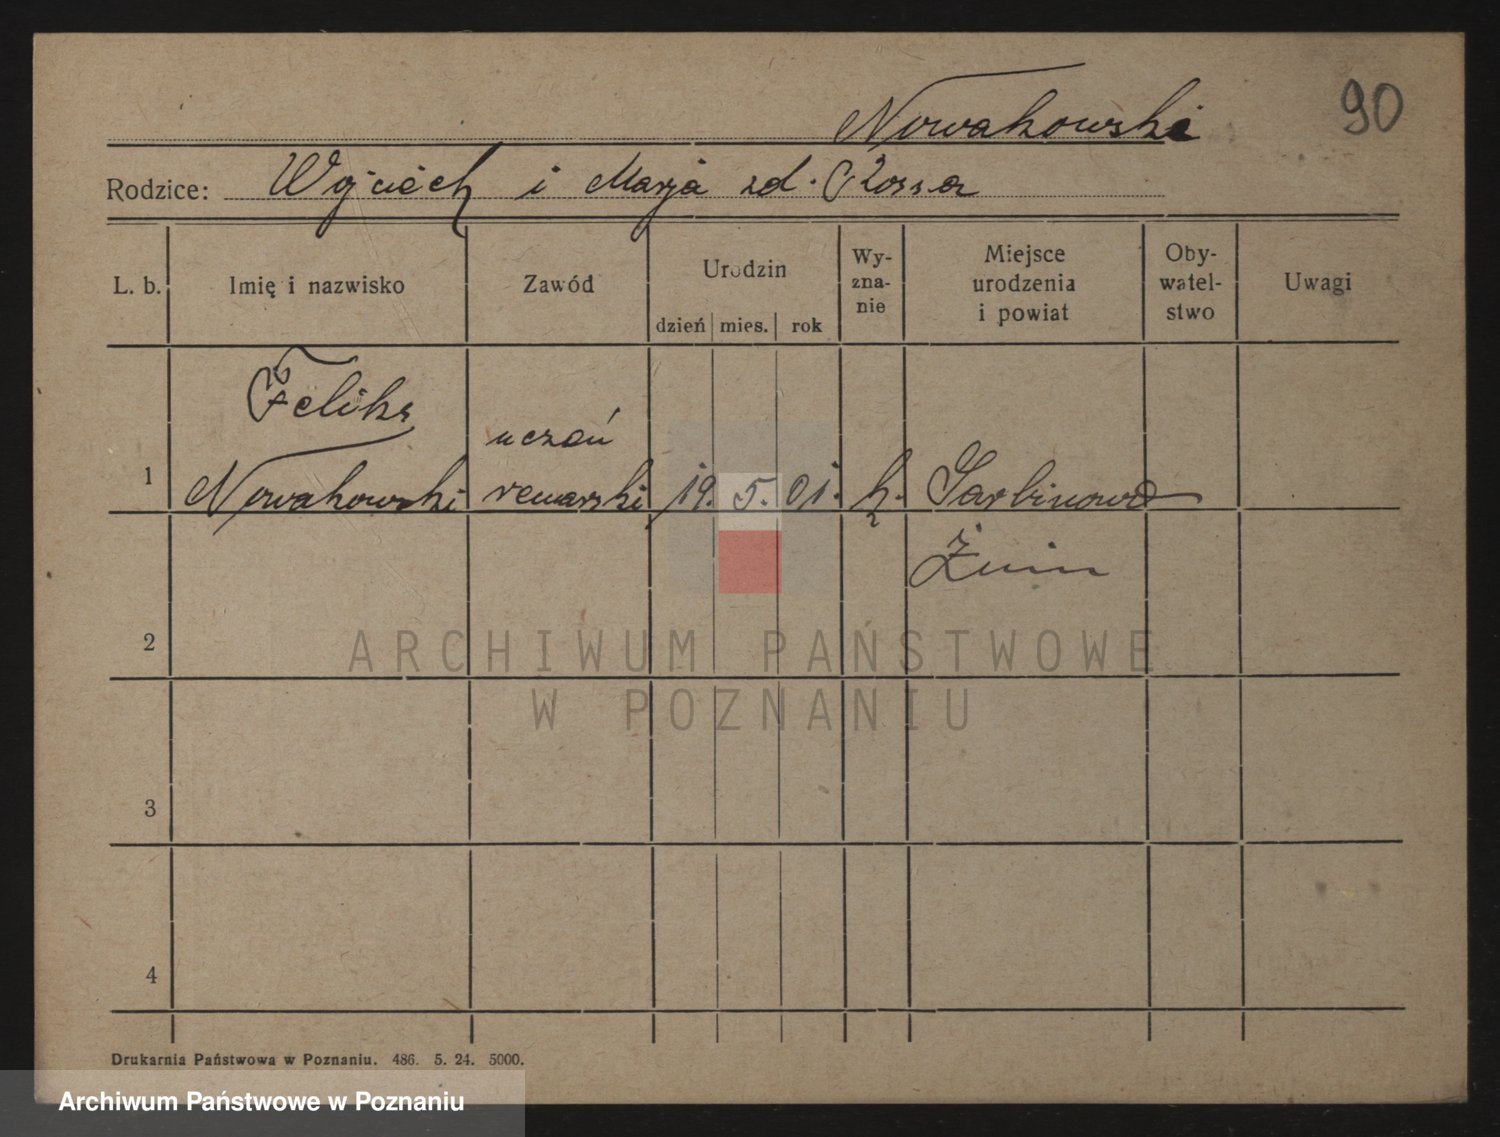 90
Nowakowski
Rodzice: Wojciech i Marja zd.
L. b. Imię i nazwisko Zawód Urodzin dzień mies. rok Wy-zna-nie Miejsce urodzenia i powiat Oby-watel-stwo Uwagi
Feliks
uczeń
1 Nowakowski 19. 5. 01. k. Sarbinowo
Żnin
2
ARCHIWUM PAŃSTWOWE
W POZNANIU
3
4
Drukarnia Państwowa w Poznaniu. 486. 5. 24. 5000.
Archiwum Państwowe w Poznaniu